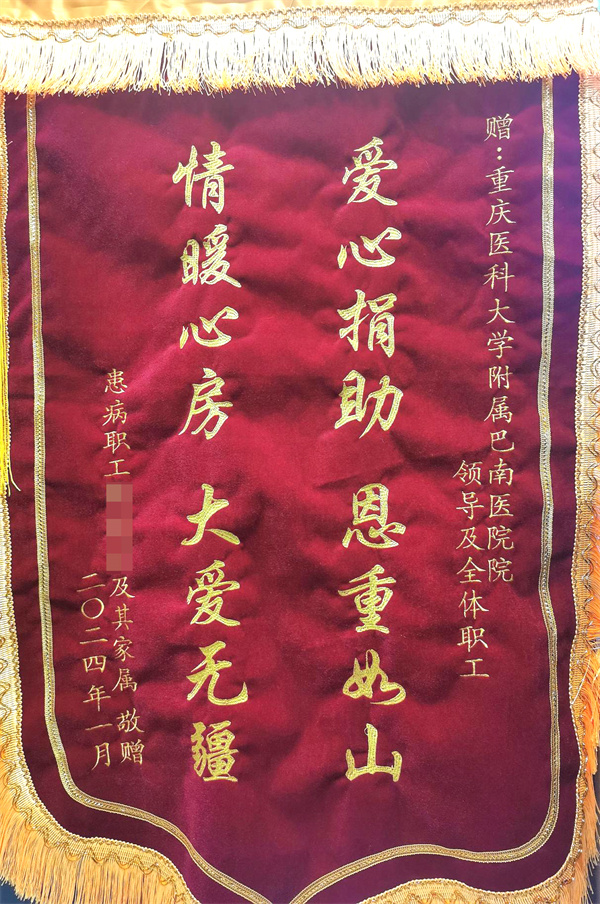 赠：重庆医科大学附属巴南医院院
领导及全体职工
爱心捐助 恩重如山
情暖心房 大爱无疆
患病职工 及其家属 敬赠
二〇二四年一月